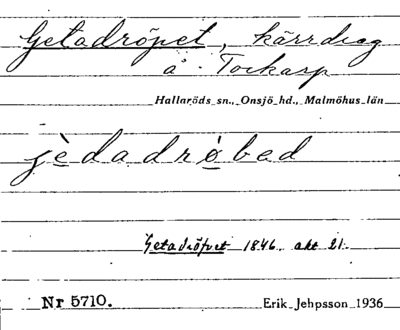 Getadröpet, kärrdrag
å Torkarp
Hallaröds sn., Onsjö hd., Malmöhus län
jèdadrø̀bad
Getadröpet 1846 akt 21.
Nr 5710.
Erik Jehpsson 1936